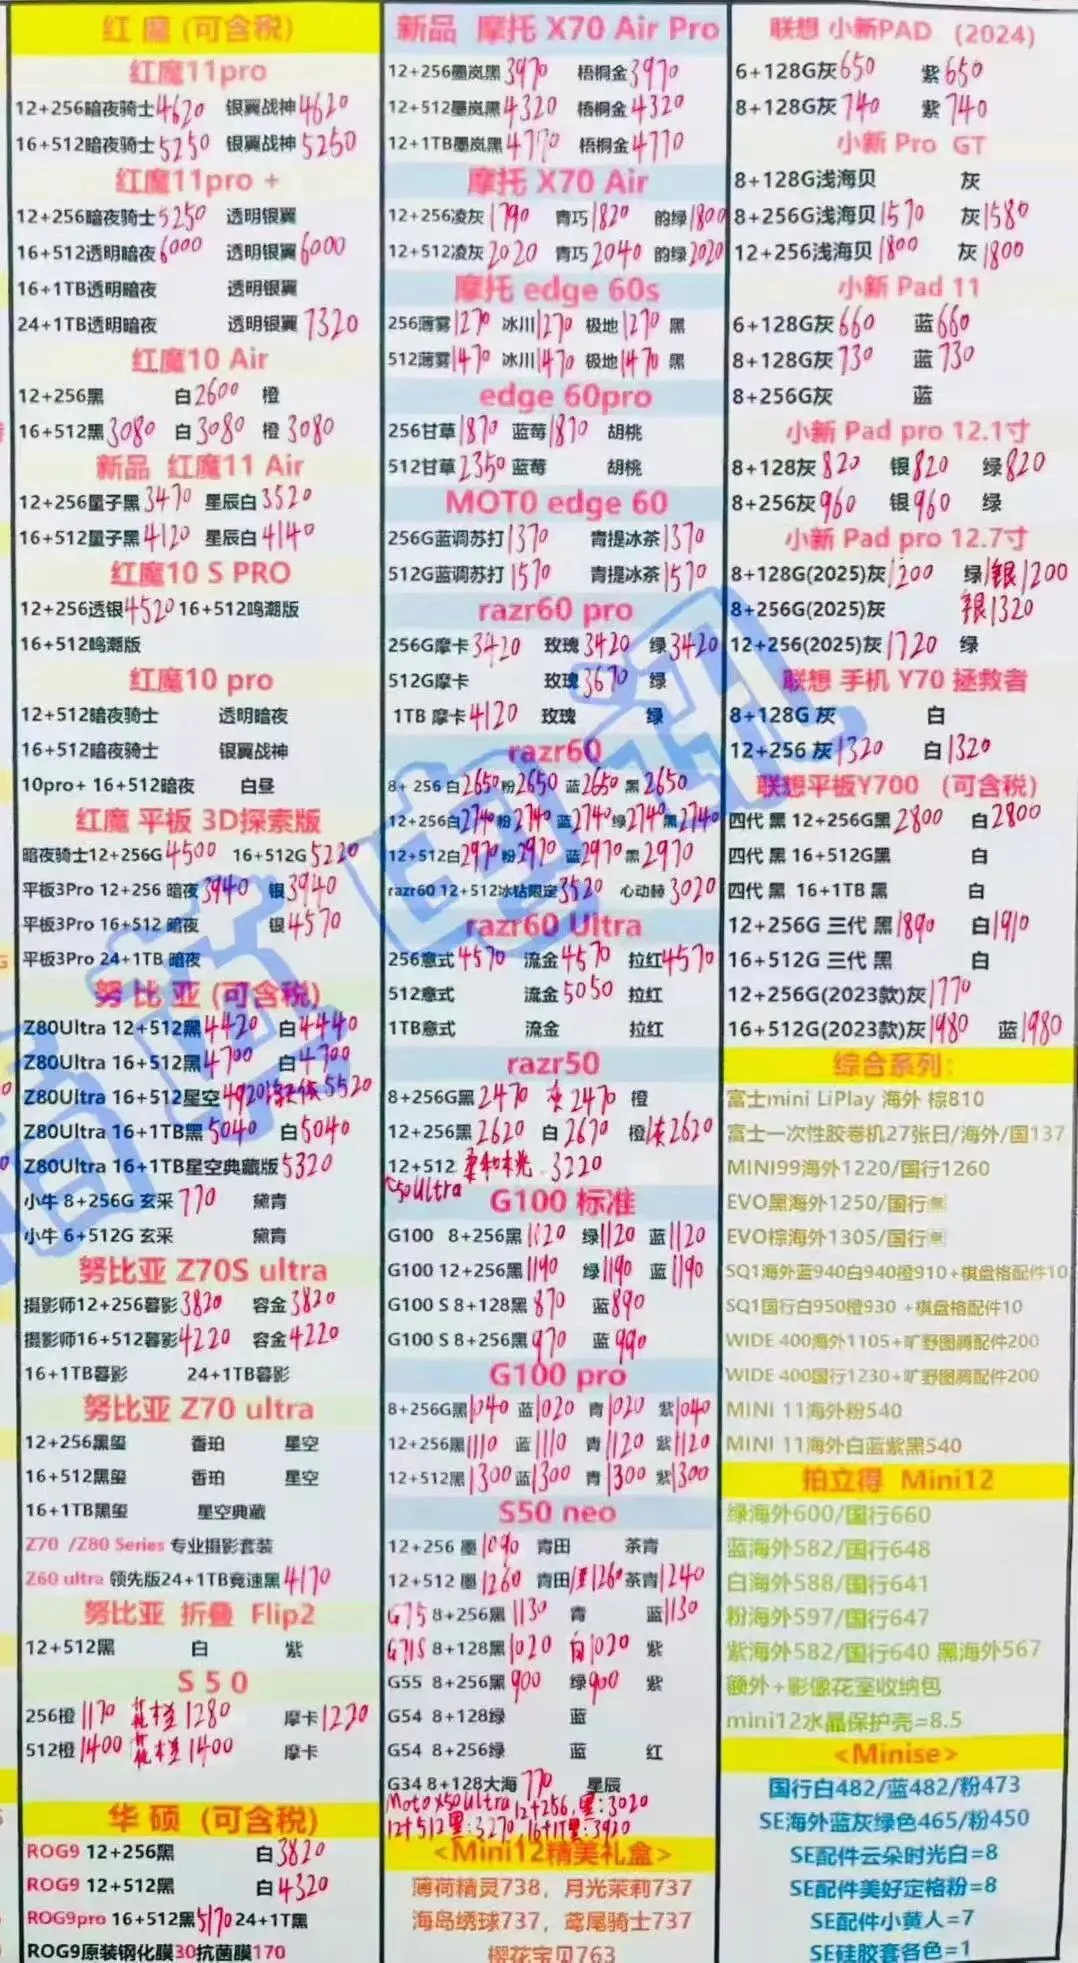 红 魔 (可含税)
红魔11pro
12+256暗夜骑士4620 银翼战神4620
16+512暗夜骑士5250 银翼战神5250
红魔11pro +
12+256暗夜骑士5250 透明银翼
16+512透明暗夜6000 透明银翼6000
16+1TB透明暗夜 透明银翼
24+1TB透明暗夜 透明银翼7320
红魔10 Air
12+256黑 白2600 橙
16+512黑3080 白3080 橙3080
新品 红魔11 Air
12+256量子黑3470 星辰白3520
16+512量子黑4120 星辰白4140
红魔10 S PRO
12+256透银4520 16+512鸣潮版
16+512鸣潮版
红魔10 pro
12+512暗夜骑士 透明暗夜
16+512暗夜骑士 银翼战神
10pro+ 16+512暗夜 白昼
红魔 平板 3D探索版
暗夜骑士12+256G4500 16+512G5220
平板3Pro 12+256 暗夜3940 银3940
平板3Pro 16+512 暗夜 银4570
平板3Pro 24+1TB 暗夜
努 比 亚 (可含税)
Z80Ultra 12+512黑4420 白4440
Z80Ultra 16+512黑4700 白4700
Z80Ultra 16+512星空4920 5520
Z80Ultra 16+1TB黑5040 白5040
Z80Ultra 16+1TB星空典藏版5320
小牛 8+256G 玄采770 黛青
小牛 6+512G 玄采 黛青
努比亚 Z70S ultra
摄影师12+256暮影3820 容金3820
摄影师16+512暮影4220 容金4220
16+1TB暮影 24+1TB暮影
努比亚 Z70 ultra
12+256黑玺 香珀 星空
16+512黑玺 香珀 星空
16+1TB黑玺 星空典藏
Z70 /Z80 Series 专业摄影套装
Z60 ultra 领先版24+1TB竞速黑4170
努比亚 折叠 Flip2
12+512黑 白 紫
S 5 0
256橙1170 花橙1280 摩卡1220
512橙1400 花橙1400 摩卡
华 硕 (可含税)
ROG9 12+256黑 白3820
ROG9 12+512黑 白4320
ROG9pro 16+512黑5170 24+1T黑
ROG9原装钢化膜30抗菌膜170
新品 摩托 X70 Air Pro
12+256墨岚黑3970 梧桐金3970
12+512墨岚黑4320 梧桐金4320
12+1TB墨岚黑4770 梧桐金4770
摩托 X70 Air
12+256凌灰1790 青巧1820 韵绿1800
12+512凌灰2020 青巧2040 韵绿2020
摩托 edge 60s
256薄雾1270 冰川1270 极地1270 黑
512薄雾1470 冰川1470 极地1470 黑
edge 60pro
256甘草1870 蓝莓1870 胡桃
512甘草2350 蓝莓 胡桃
MOT0 edge 60
256G蓝调苏打1370 青提冰茶1370
512G蓝调苏打1570 青提冰茶1570
razr60 pro
256G摩卡3420 玫瑰3420 绿3420
512G摩卡 玫瑰3670 绿
1TB 摩卡4120 玫瑰 绿
razr60
8+ 256 白2650 粉2650 蓝2650 黑2650
12+256白2740 粉2740 蓝2740 绿2740 黑2740
12+512白2970 粉2970 蓝2970 黑2970
razr60 12+512冰钻限定3520 心动赫3020
razr60 Ultra
256意式4570 流金4570 拉红4570
512意式 流金5050 拉红
1TB意式 流金 拉红
razr50
8+256G黑2470 灰2470 橙
12+256黑2620 白2670 橙灰2620
12+512 柔和木光 3220
S50Ultra
G100 标准
G100 8+256黑1120 绿1120 蓝1120
G100 12+256黑1190 绿1190 蓝1190
G100 S 8+128黑870 蓝890
G100 S 8+256黑970 蓝990
G100 pro
8+256G黑1040 蓝1020 青1020 紫1040
12+256黑1110 蓝1110 青1120 紫1120
12+512黑1300 蓝1300 青1300 紫1300
S50 neo
12+256 墨1090 青田 茶青
12+512 墨1260 青田 1260 茶青1240
G75 8+256黑1130 青 蓝1130
G71S 8+128黑1020 白1020 紫
G55 8+256黑900 绿900 紫
G54 8+128绿 蓝
G54 8+256绿 蓝 红
G34 8+128大海770 星辰
Moto X50ultra 12+256,黑:3020
12+512黑:3270 16+1T黑:3920
<Mini12精美礼盒>
薄荷精灵738，月光茉莉737
海岛绣球737，鸢尾骑士737
樱花宝贝763
联想 小新PAD (2024)
6+128G灰650 紫650
8+128G灰740 紫740
小新 Pro GT
8+128G浅海贝 灰
8+256G浅海贝1570 灰1580
12+256浅海贝1800 灰1800
小新 Pad 11
6+128G灰660 蓝660
8+128G灰730 蓝730
8+256G灰 蓝
小新 Pad pro 12.1寸
8+128灰820 银820 绿820
8+256灰960 银960 绿
小新 Pad pro 12.7寸
8+128G(2025)灰1200 绿/银1200
8+256G(2025)灰 银1320
12+256(2025)灰1720 绿
联想 手机 Y70 拯救者
8+128G 灰 白
12+256 灰1320 白1320
联想平板Y700 (可含税)
四代 黑 12+256G黑2800 白2800
四代 黑 16+512G黑 白
四代 黑 16+1TB 黑 白
12+256G 三代 黑1890 白1910
16+512G 三代 黑 白
12+256G(2023款)灰1770
16+512G(2023款)灰1980 蓝1980
综合系列：
富士mini LiPlay 海外 棕810
富士一次性胶卷机27张日/海外/国137
MINI99海外1220/国行1260
EVO黑海外1250/国行無
EVO棕海外1305/国行無
SQ1海外蓝940白940橙910+棋盘格配件10
SQ1国行白950橙930 +棋盘格配件10
WIDE 400海外1105+旷野图腾配件200
WIDE 400国行1230+旷野图腾配件200
MINI 11海外粉540
MINI 11海外白蓝紫黑540
拍立得 Mini12
绿海外600/国行660
蓝海外582/国行648
白海外588/国行641
粉海外597/国行647
紫海外582/国行640 黑海外567
额外+影像花室收纳包
mini12水晶保护壳=8.5
<Minise>
国行白482/蓝482/粉473
SE海外蓝灰绿色465/粉450
SE配件云朵时光白=8
SE配件美好定格粉=8
SE配件小黄人=7
SE硅胶套各色=1